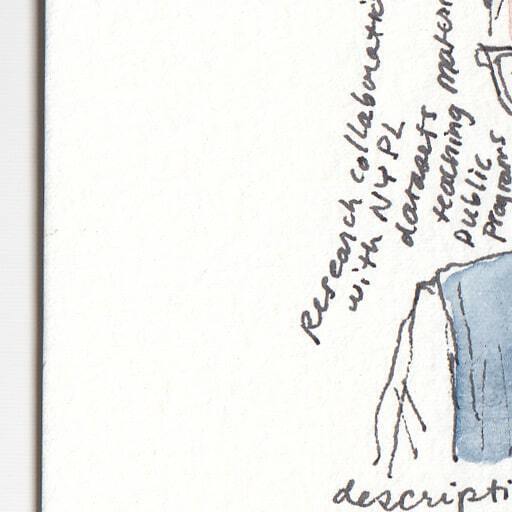 Research collaborati
with NYPL
datasets
teaching mater
public
programs
descripti